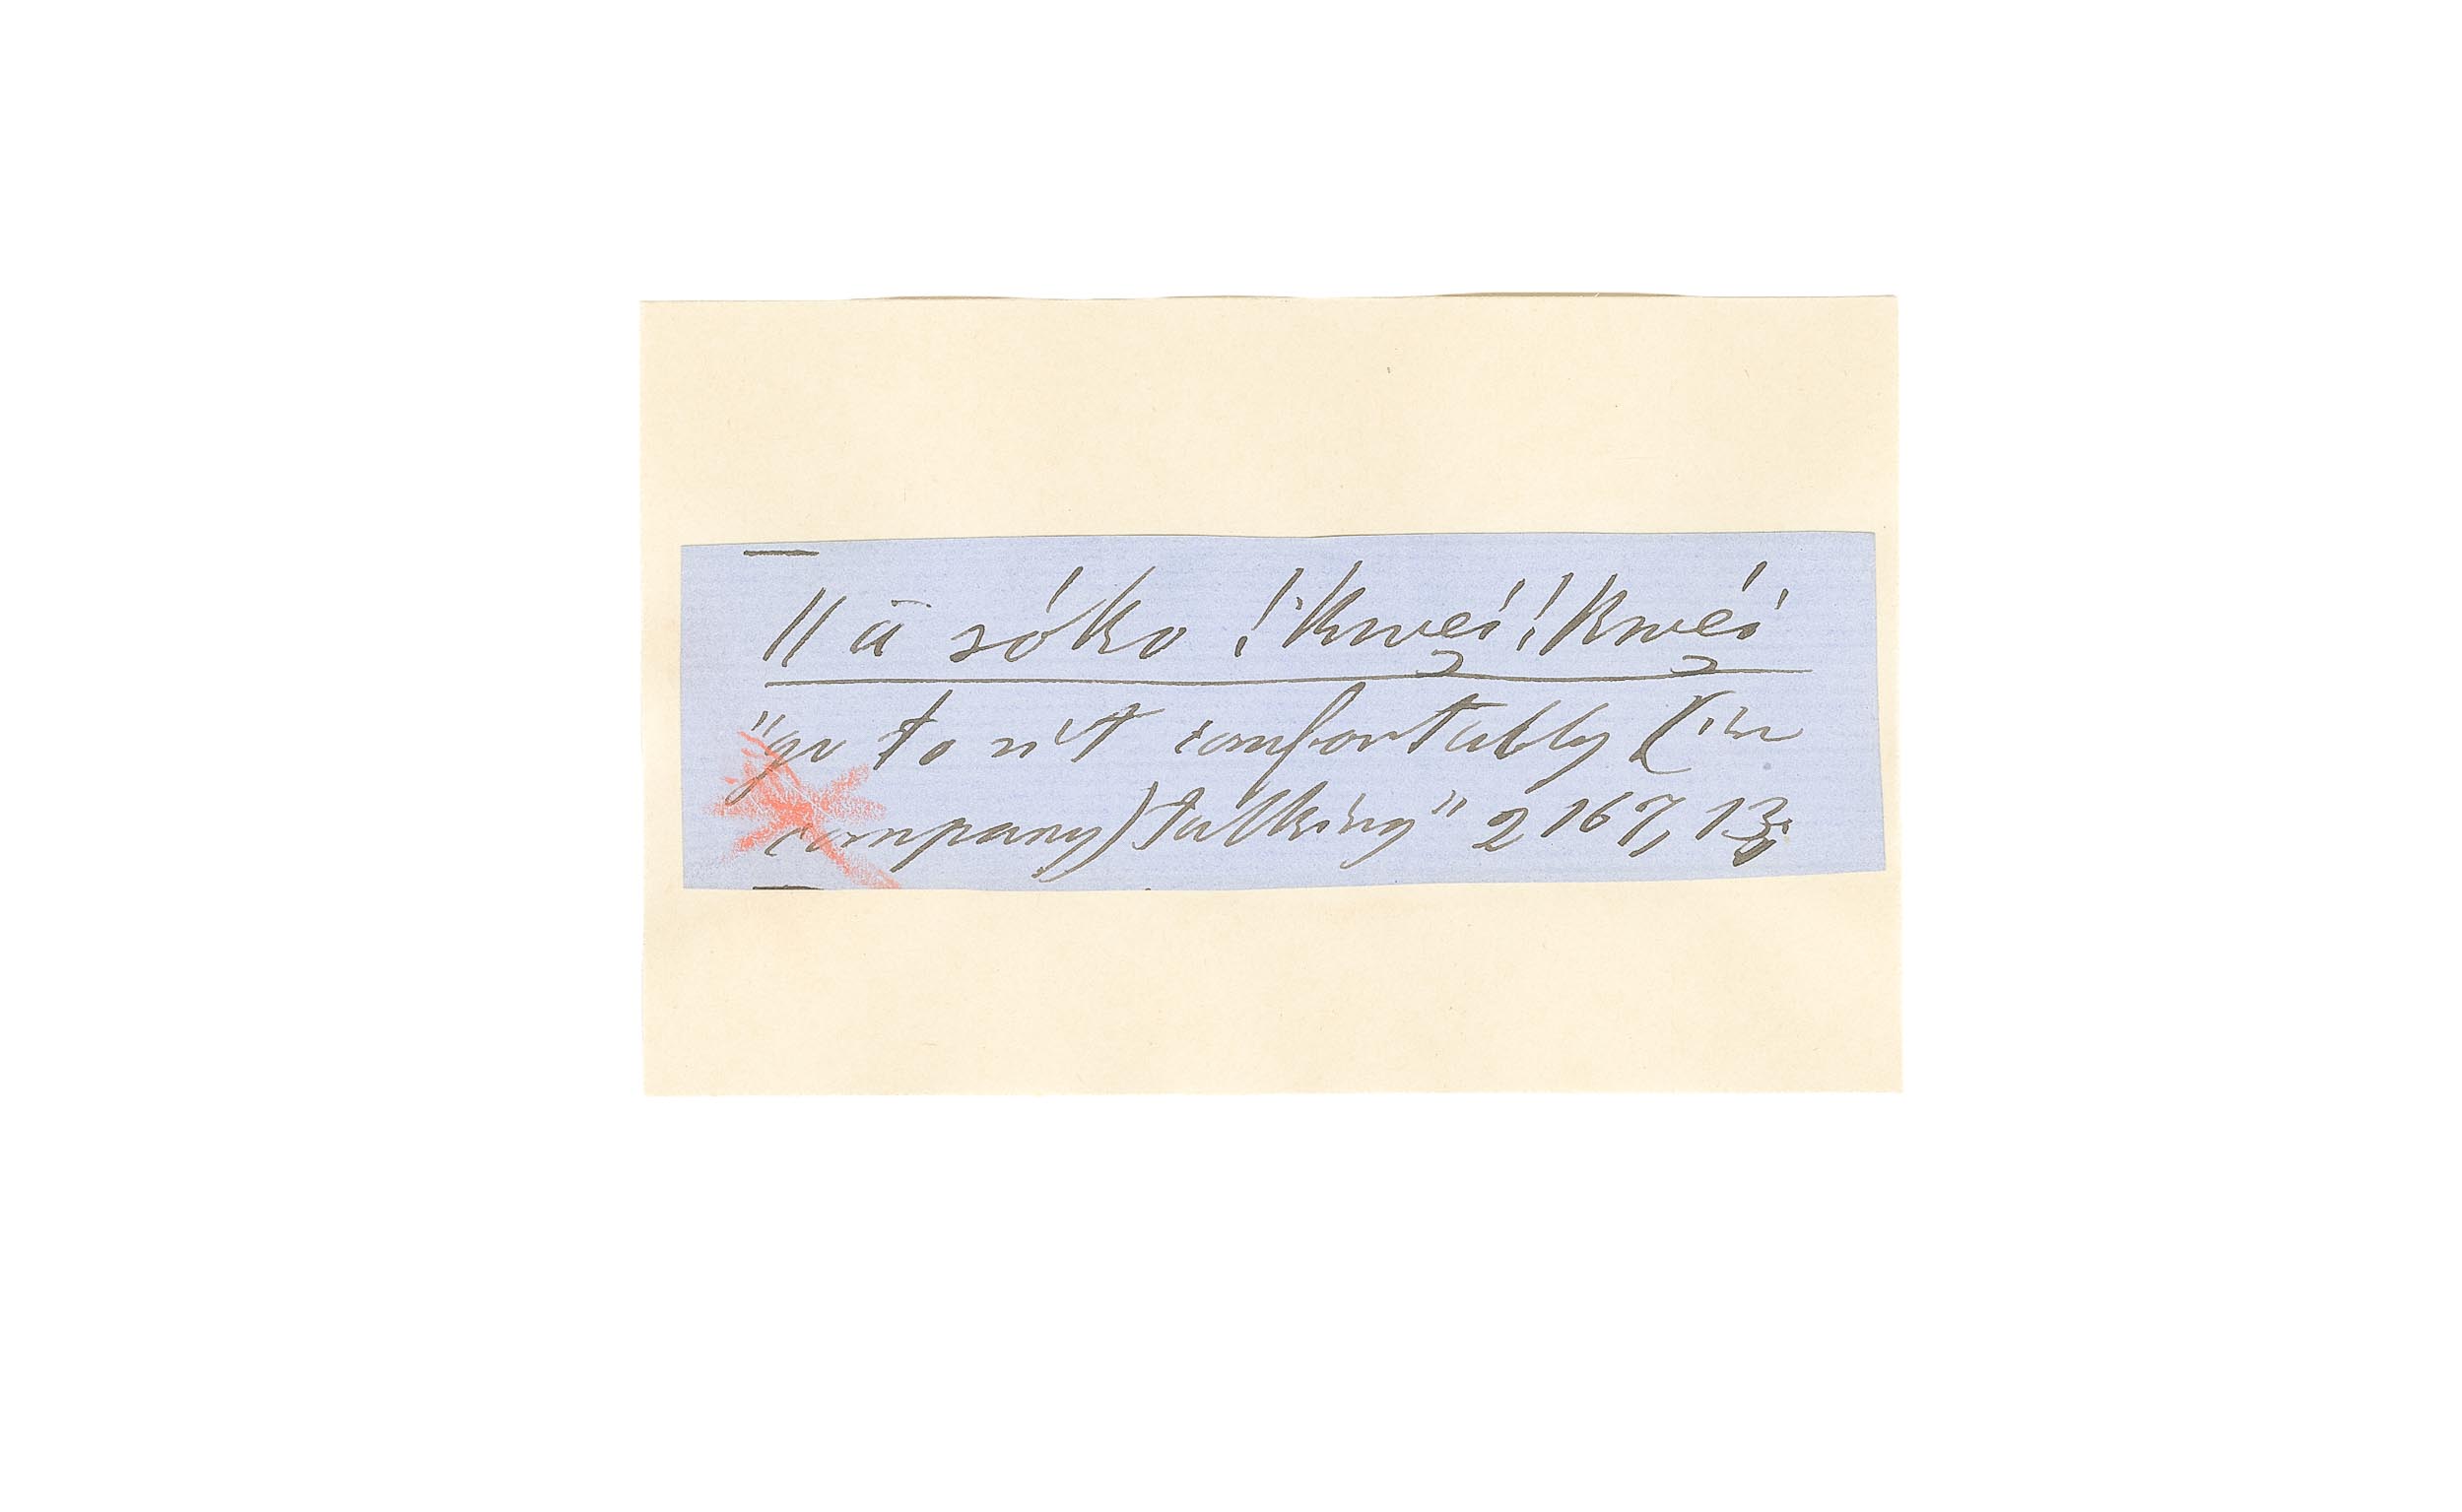 ǁā sóko !kwe̯í !kwe̯í
"go to sit comfortably (in
company) talking" 2167, 13;